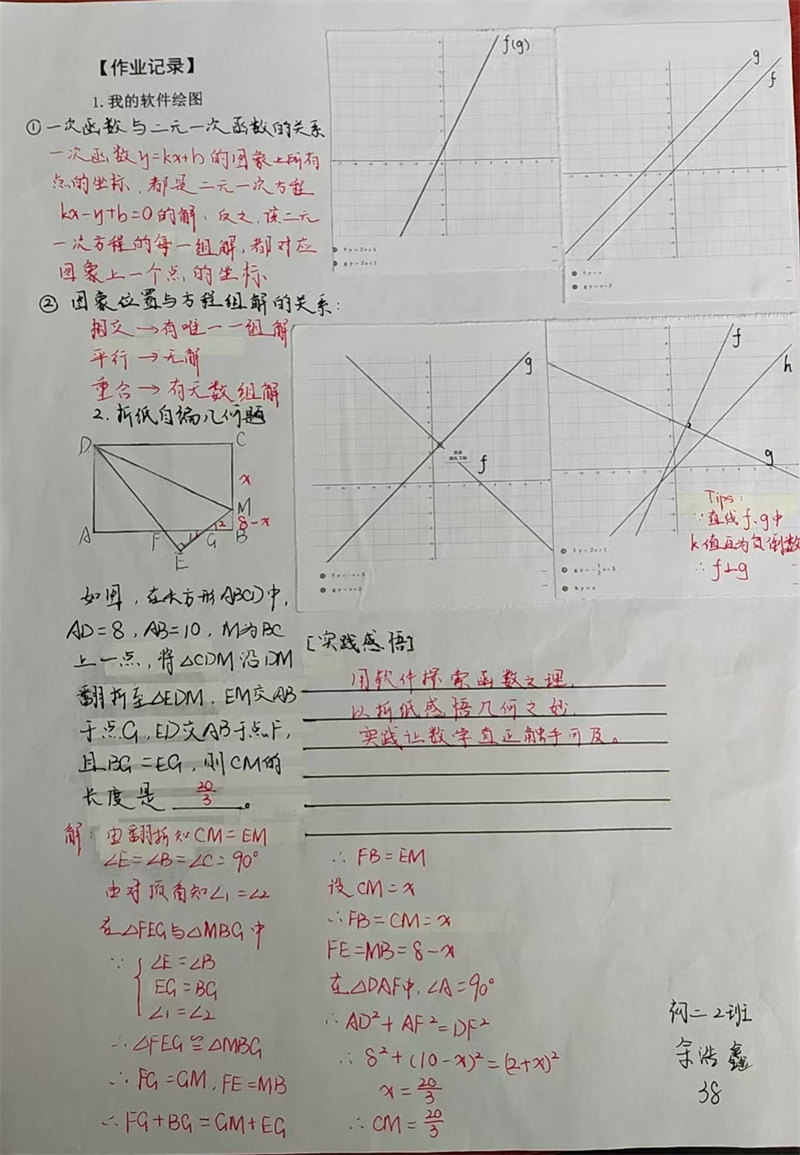 【作业记录】
1. 我的软件绘图
① 一次函数与二元一次函数的关系
一次函数y=kx+b的图象上所有
点的坐标，都是二元一次方程
kx-y+b=0的解；反之，该二元
一次方程的每一组解，都对应
图象上一个点的坐标
② 图象位置与方程组解的关系：
相交→有唯一一组解
平行→无解
重合→有无数组解
f(g)
f y=2x+1
g y=2x+1
g
f
f y=x
g y=x+2
g
f
f y=-x+3
g y=x+2
f
h
g
Tips：
∵直线f、g中
k值互为负倒数
∴ f⊥g
f y=2x+1
h y=x
2. 折纸自编几何题
D
C
x
M
8-x
2
A
F
1
G
B
E
如图，在长方形ABCD中，
AD=8，AB=10，M为BC
上一点，将△CDM沿DM
翻折至△EDM，EM交AB
于点G，ED交AB于点F，
且BG=EG，则CM的
长度是 20/3 。
[实践感悟]
用软件探索函数之理，
以折纸感悟几何之妙，
实践让数学真正触手可及。
解：由翻折知CM=EM
∠E=∠B=∠C=90°
由对顶角知∠1=∠2
在△FEG与△MBG中
∵ { ∠E=∠B
EG=BG
∠1=∠2
∴ △FEG≌△MBG
∴ FG=GM，FE=MB
∴ FG+BG=GM+EG
∴ FB=EM
设CM=x
∴FB=CM=x
FE=MB=8-x
在△DAF中，∠A=90°
∴ AD²+AF²=DF²
∴ 8²+(10-x)²=(2+x)²
x=20/3
∴ CM=20/3
初二2班
余浩鑫
38